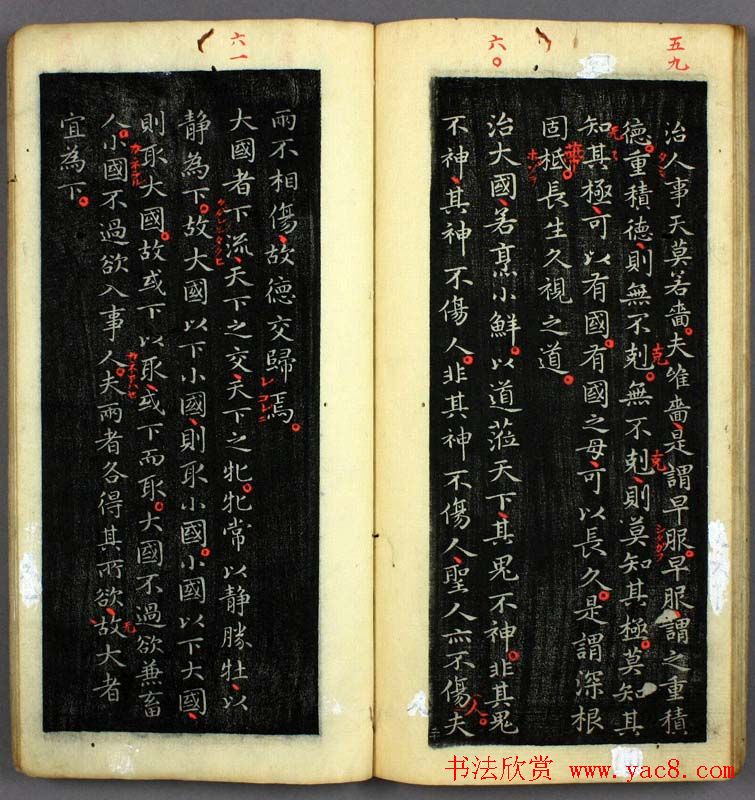 五九
治人事天莫若嗇。夫唯嗇、是謂早服。早服、謂之重積
德。重積德、則無不剋。無不剋、則莫知其極。莫知其
知其極、可以有國。有國之母、可以長久。是謂深根
固柢長生久視之道
六〇
治大國、若烹小鮮。以道莅天下、其鬼不神。非其鬼
不神、其神不傷人。非其神不傷人、聖人亦不傷夫
克
克
人。
六一
兩不相傷、故德交歸焉。
大國者下流、天下之交、天下之牝。牝常以静勝牡、以
静為下。故大國以下小國、則取小國。小國以下大國、
則取大國。故或下以取、或下而取。大國不過欲兼畜
人。小國不過欲入事人。夫兩者各得其所欲、故大者
宜為下。
书法欣赏 www.yac8.com